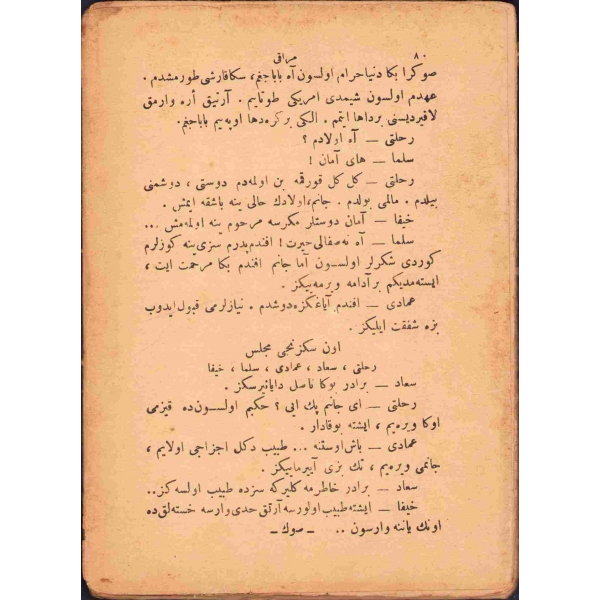 ٨٠ مراقی
صوكرا بكا دنیا حرام اولسون آه باباجغم، سكا قارشی طورمشدم .
عهدم اولسون شیمدی امریكی طوتایم . آرتیق أره وارمق
لاقیردیسنی برداها ایتمم . الكی بركره دها اوپه یم باباجغم.
رحلتی — آه اولادم ؟
سلما — های آمان !
رحلتی — كل كل قورقمه بن اولمه دم دوستی ، دوشمنی
بیلدم . مالمی بولدم . جانم، اولادك حالی ینه باشقه ایمش .
خیفا — آمان دوستلر مكرسه مرحوم ینه اولمه مش ...
سلما — آه نه صفالی حیرت ! افندم پدرم سزی ینه كوزلرم
كوردی شكرلر اولسون آما جانم افندم بكا مرحمت ایت ،
ایسته مدیكم برآدامه ویرمه ییكز.
عمادی — افندم آیاغكزه دوشدم . نیازلرمی قبول ایدوب
بزه شفقت ایلیكز .
اون سكزنجی مجلس
رحلتی ، سعاد ، عمادی ، سلما ، خیفا
سعاد — برادر بوكا ناصل دایانیرسكز .
رحلتی — ای جانم پك ایی ؟ حكیم اولسون ده قیزمی
اوكا ویره یم ، ایشته بوقادار .
عمادی — باش اوستنه ... طبیب دكل اجزاجی اولایم ،
جانمی ویره یم ، تك بزی آییرماییكز .
سعاد — برادر خاطرمه كلیركه سزده طبیب اولسه كز..
خیفا — ایشته طبیب اولورسه آرتق حدی وارسه خسته لق ده
اونك یاننه وارسون .. — صوك —